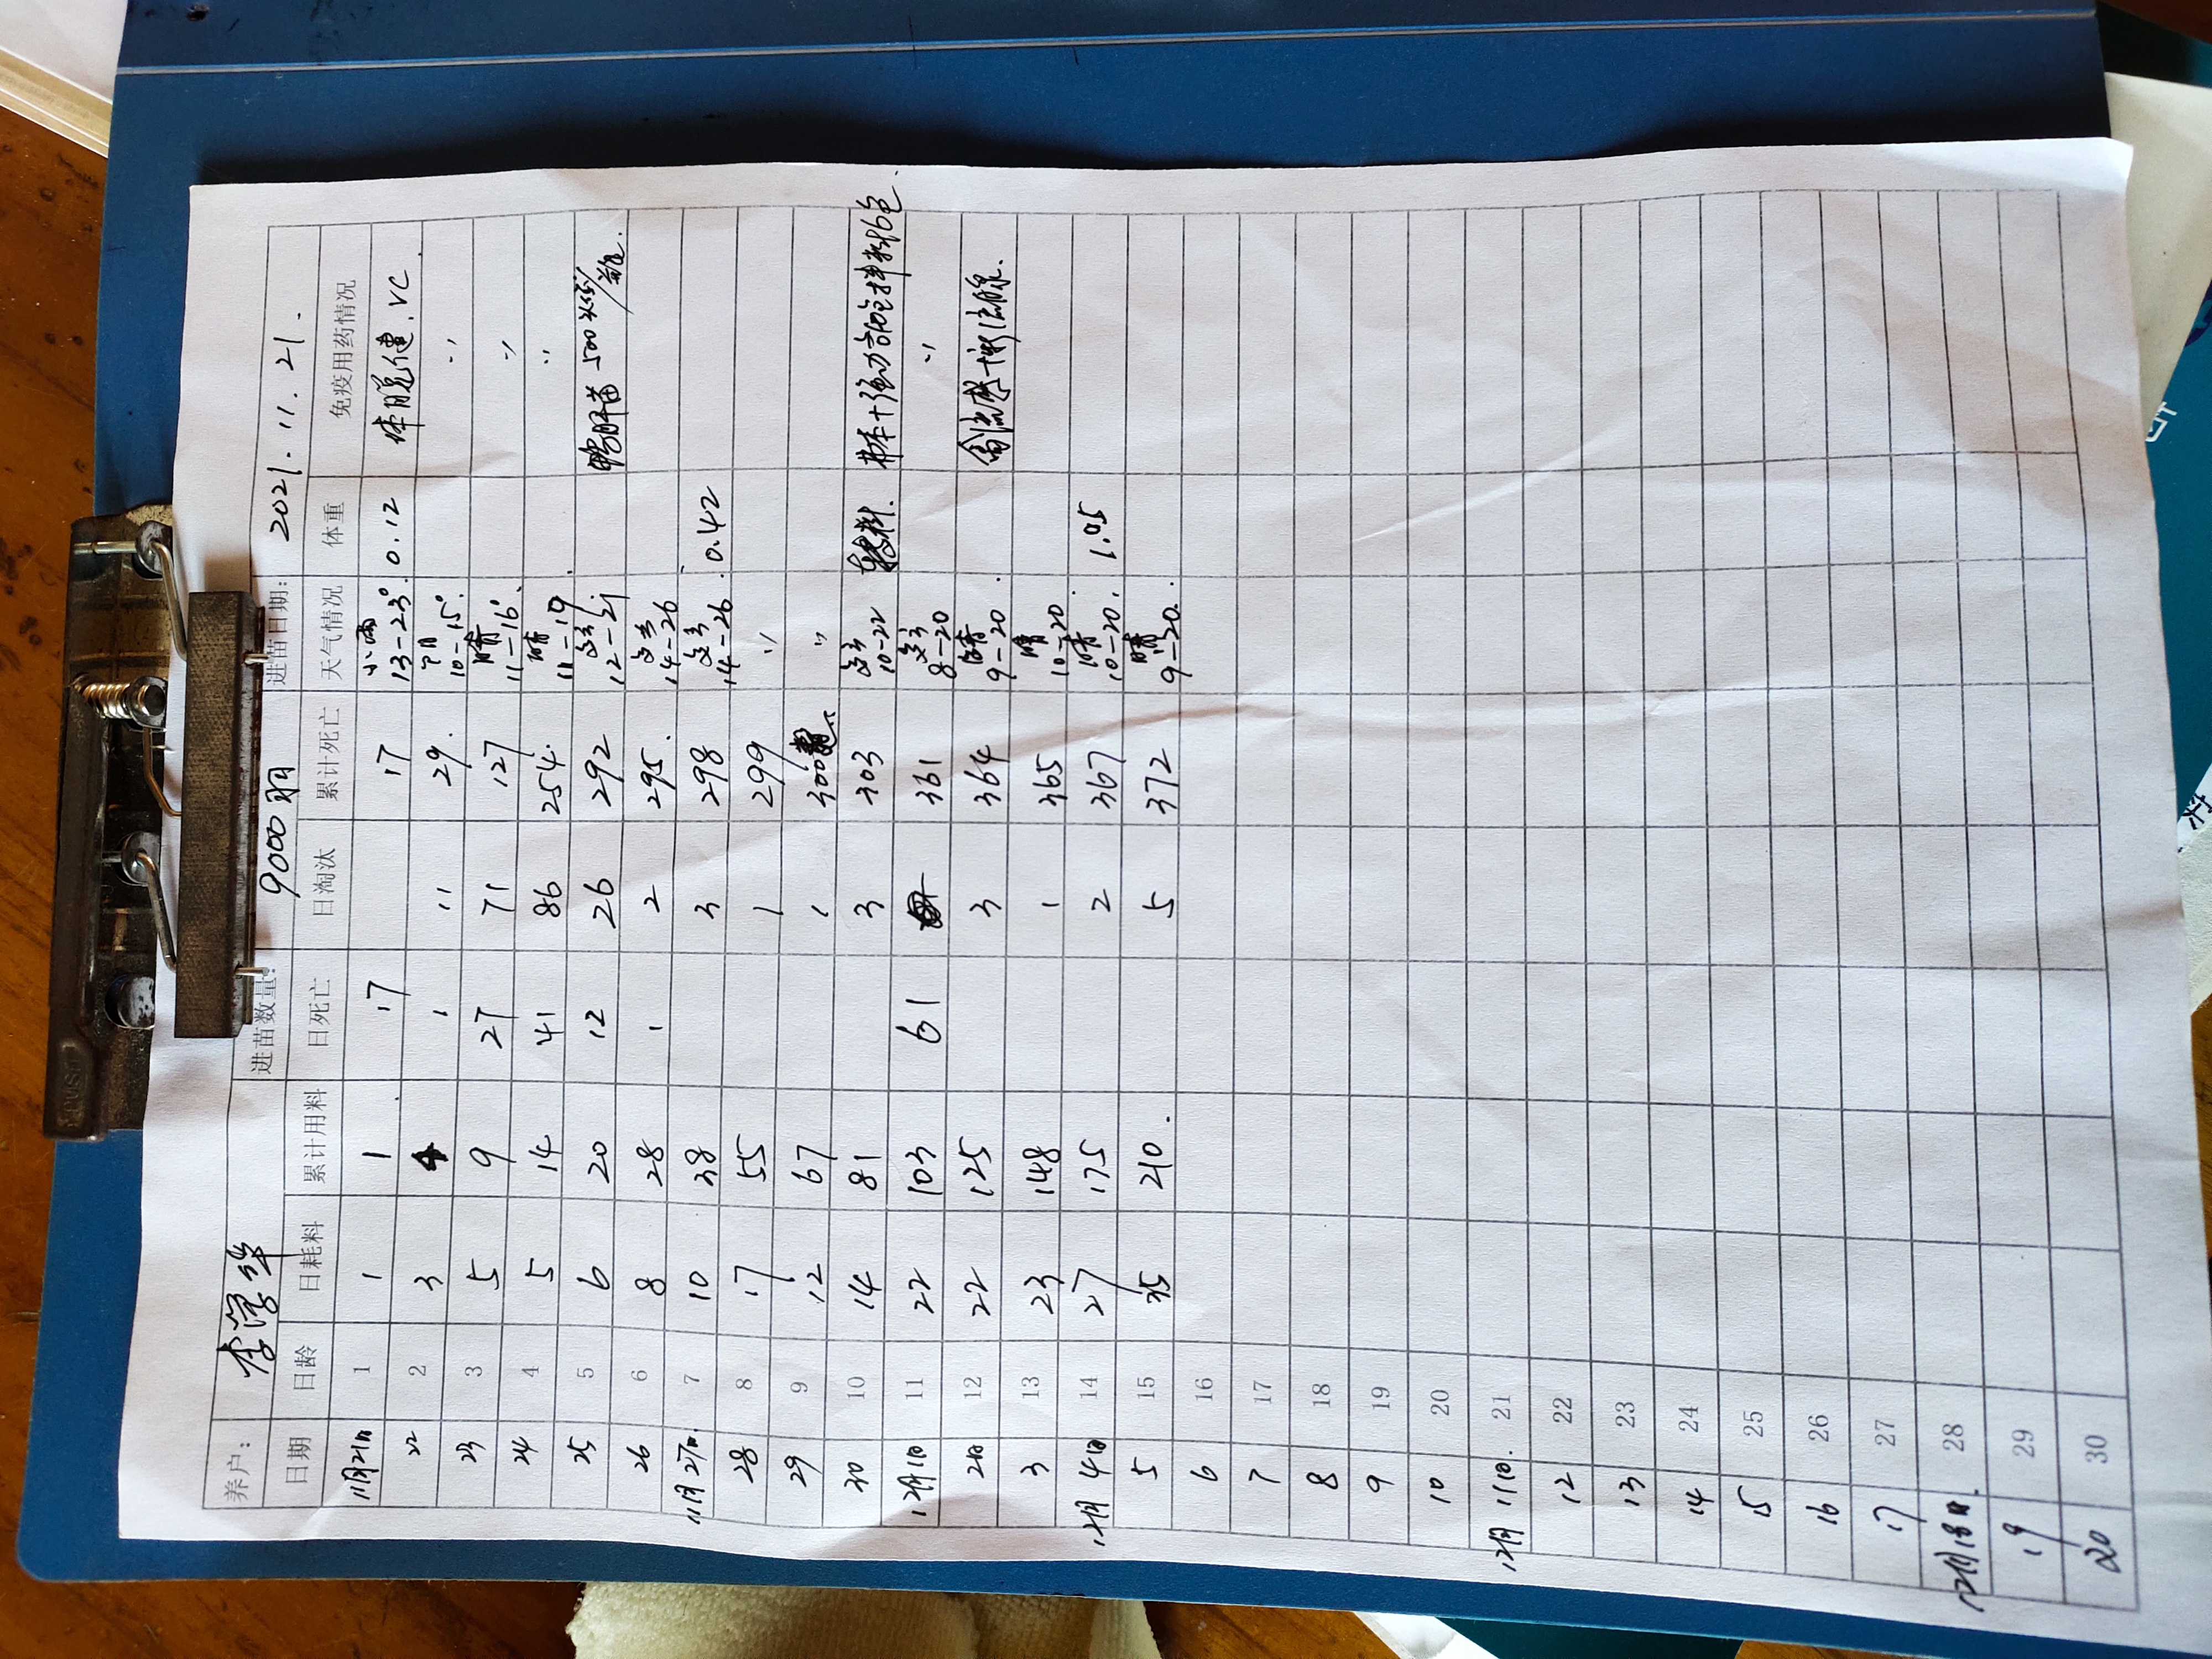 养户： 李泽华 进苗数量： 9000羽 进苗日期： 2021.11.21.
日期 日龄 日耗料 累计用料 日死亡 日淘汰 累计死亡 天气情况 体重 免疫用药情况
11月21日 1 1 1 17 17 小雨 13-23° 0.12 体肥健.VC
22 2 3 4 1 11 29. 阴 10-15°. 〃
23 3 5 9 27 71 127 晴 11-16°. 〃
24 4 5 14 41 86 254. 晴 11-19 〃
25 5 6 20 12 26 292 多云 12-21. 鸭肝苗 500
26 6 8 28 1 2 295. 多云 14-26
11月27日. 7 10 38 3 298 多云 14-26. 0.42
28 8 17 55 1 299 〃
29 9 12 67 1 300 〃
30 10 14 81 3 303 多云 10-22 换料. 拌料6包.
12月1日 11 22 103 61 361 多云 8-20 〃
2日 12 22 125 3 364 晴 9-20.
3 13 23 148 1 365 晴 10-20.
12月4日 14 27 175 2 367 晴 10-20. 1.05
5 15 35 210. 5 372 晴 9-20.
6 16
7 17
8 18
9 19
10 20
12月11日. 21
12 22
13 23
14 24
15 25
16 26
17 27
12月18日. 28
19 29
20 30